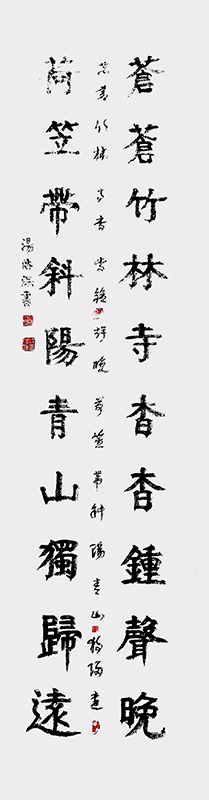 蒼蒼竹林寺杳杳鍾聲晚
蒼蒼竹林寺杳杳鍾聲晚荷笠帶斜陽青山獨歸遠
荷笠帶斜陽青山獨歸遠
湯書